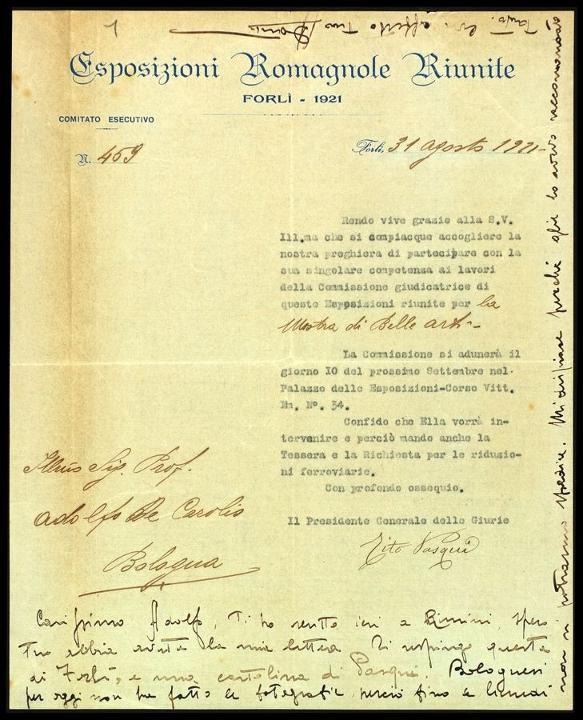 1
Esposizioni Romagnole Riunite
FORLÌ - 1921
COMITATO ESECUTIVO
N. 459
Forlì, 31 agosto 1921-
Rendo vive grazie alla S.V.
Ill.ma che si compiacque accogliere la
nostra preghiera di partecipare con la
sua singolare competenza ai lavori
della Commissione giudicatrice di
queste Esposizioni riunite per la
Mostra di Belle arti-
La Commissione si adunerà il
giorno 10 del prossimo Settembre nel
Palazzo delle Esposizioni-Corso Vitt.
Em. N°. 34.
Confido che Ella vorrà in-
tervenire e perciò mando anche la
Tessera e la Richiesta per le riduzio-
ni ferroviarie.
Con profondo ossequio.
Il Presidente Generale delle Giurie
Tito Pasqui
Illmo Sig. Prof.
Adolfo De Carolis
Bologna
Carissimo Adolfo, Ti ho scritto ieri a Rimini, spero
Tu abbia avuto la mia lettera. Ti respingo questa
di Forlì, e una cartolina di Pasqui Bolognesi
per oggi non ha fatto le fotografie, perciò fino a lunedì
non si potranno spedire. Mi dispiace perché glie lo avevo raccomandato
Tanto. Con affetto Tuo